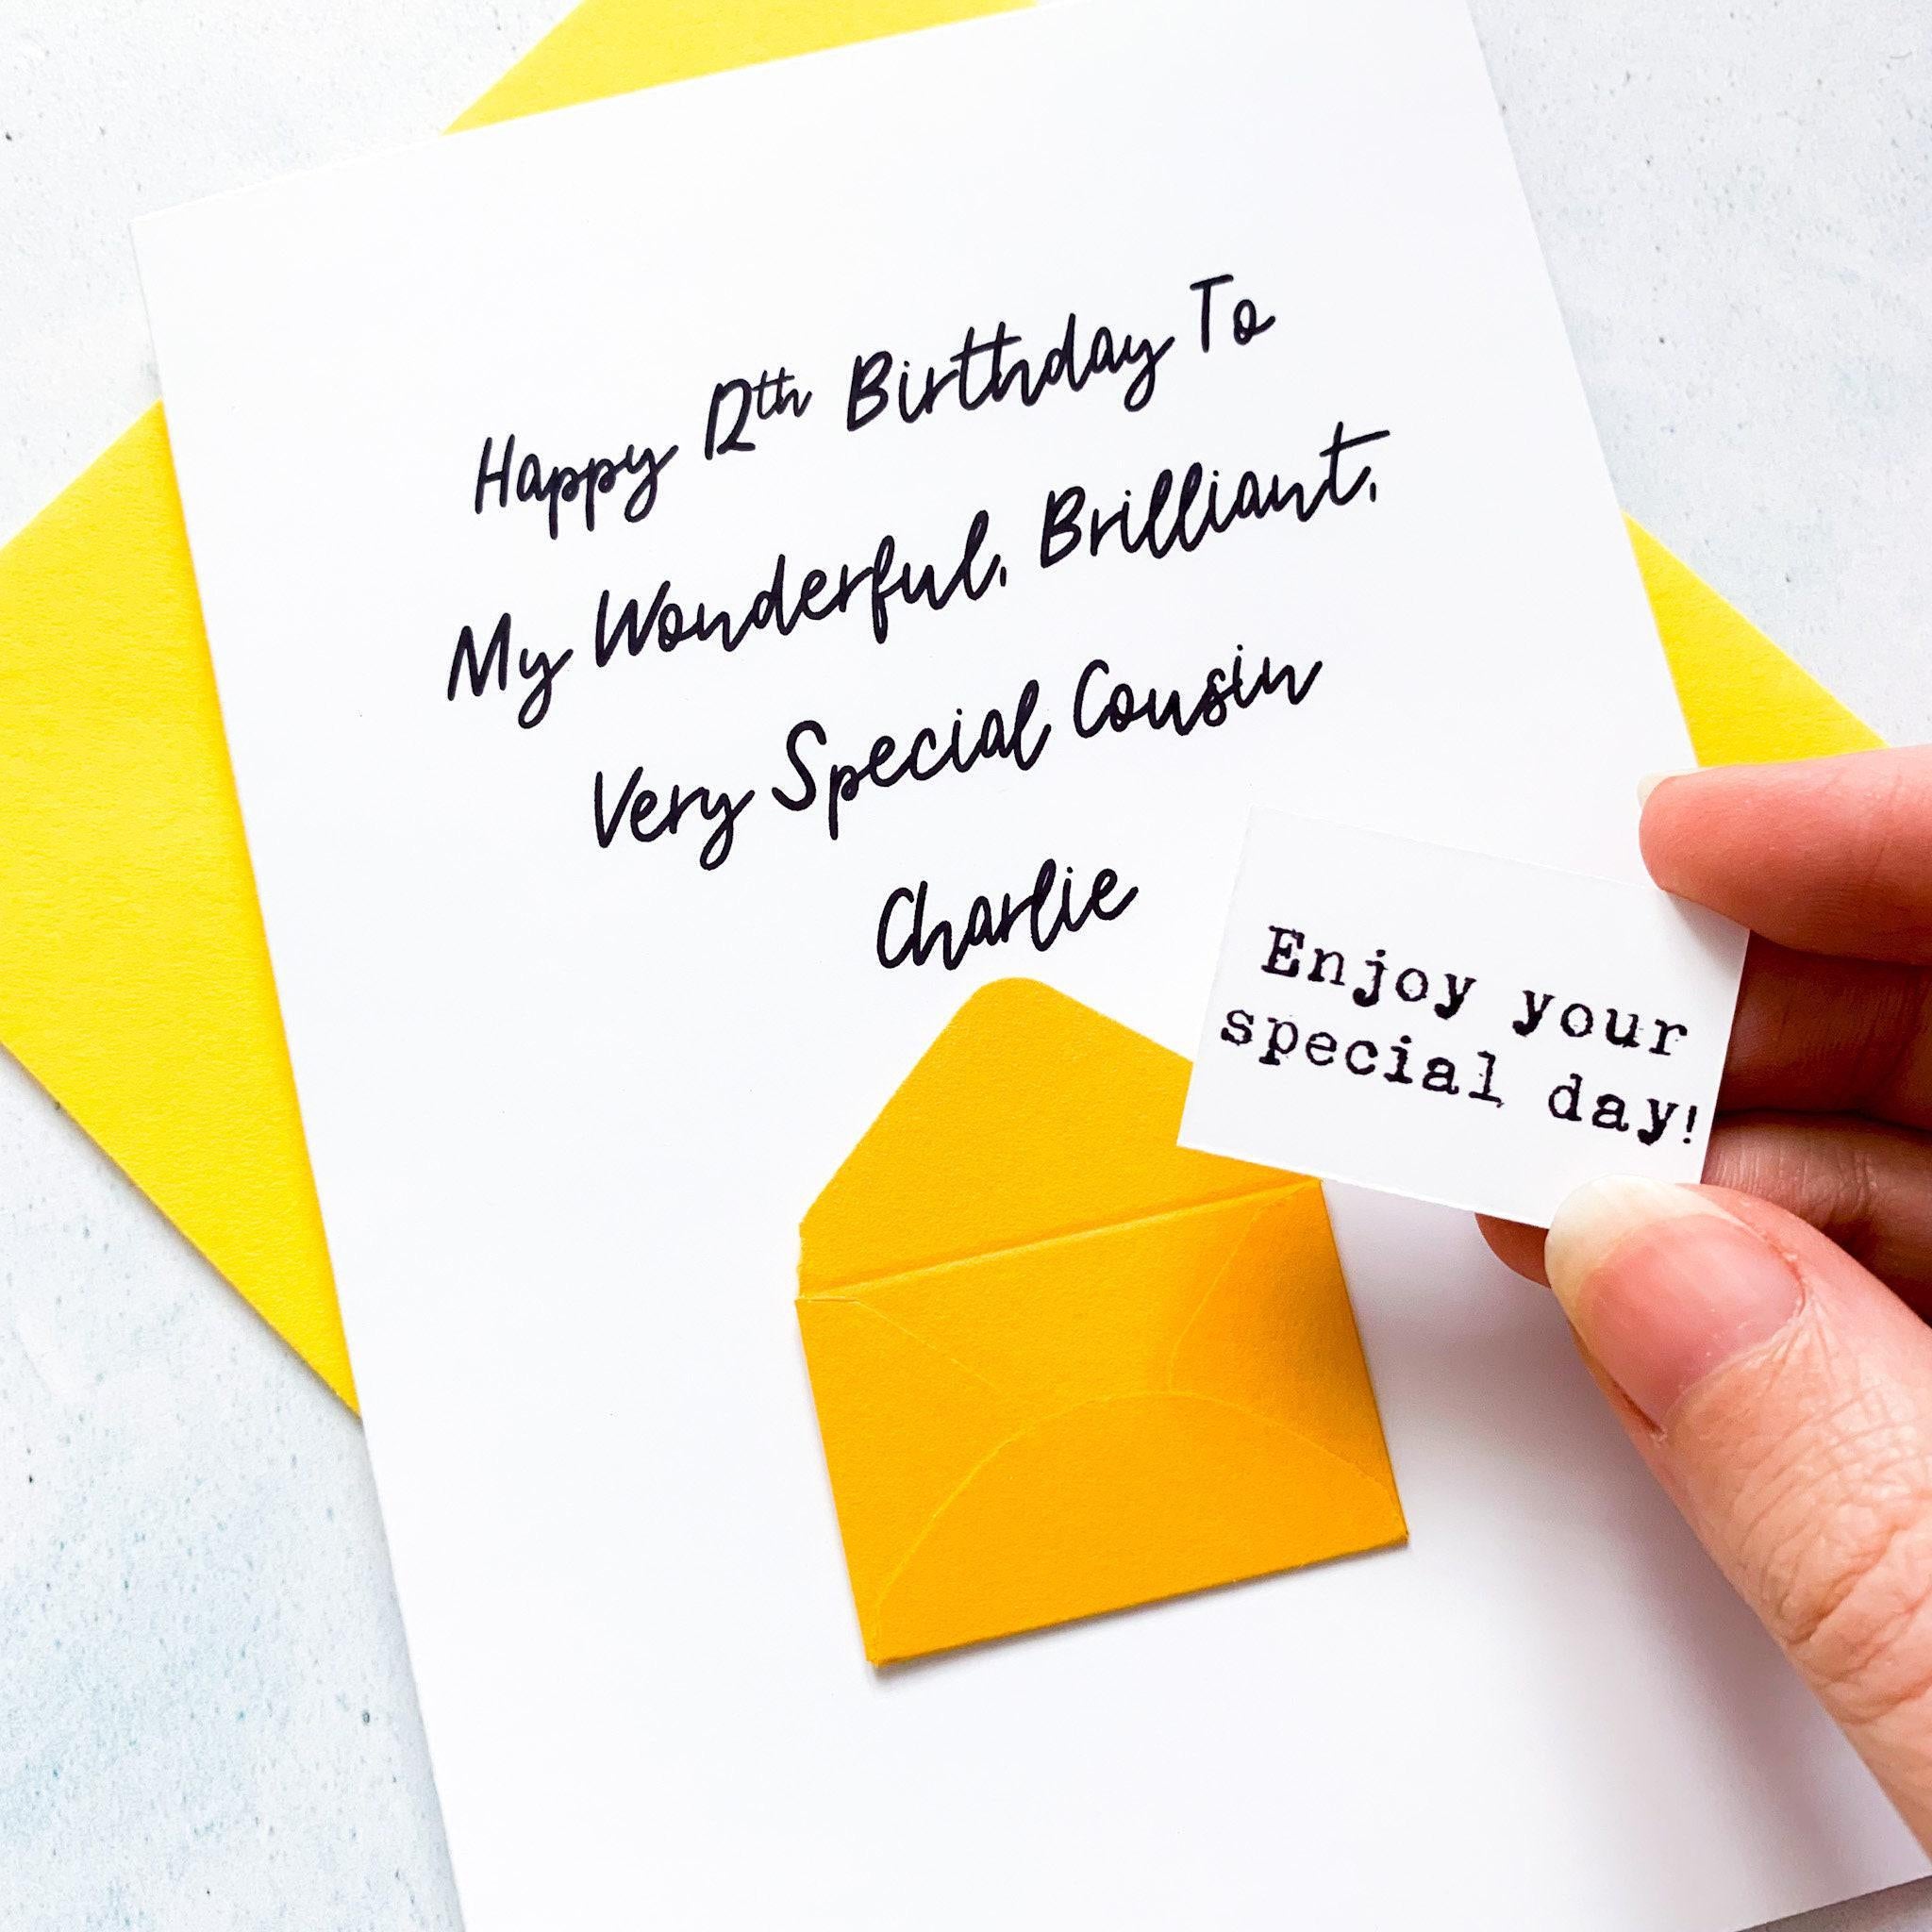 Happy 12th Birthday To
My Wonderful, Brilliant,
Very Special Cousin
Charlie
Enjoy your
special day!